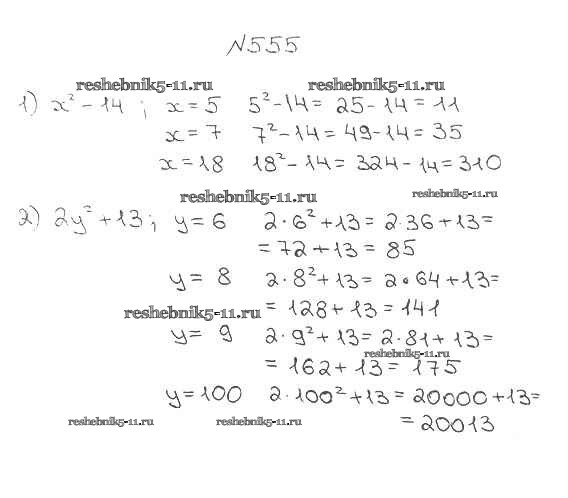 N555
reshebnik5-11.ru reshebnik5-11.ru
1) x² - 14 ; x = 5 5² - 14 = 25 - 14 = 11
x = 7 7² - 14 = 49 - 14 = 35
x = 18 18² - 14 = 324 - 14 = 310
reshebnik5-11.ru reshebnik5-11.ru
2) 2y² + 13 ; y = 6 2 · 6² + 13 = 2 · 36 + 13 =
= 72 + 13 = 85
y = 8 2 · 8² + 13 = 2 · 64 + 13 =
reshebnik5-11.ru = 128 + 13 = 141
y = 9 2 · 9² + 13 = 2 · 81 + 13 =
reshebnik5-11.ru
= 162 + 13 = 175
y = 100 2 · 100² + 13 = 20000 + 13 =
reshebnik5-11.ru reshebnik5-11.ru = 20013